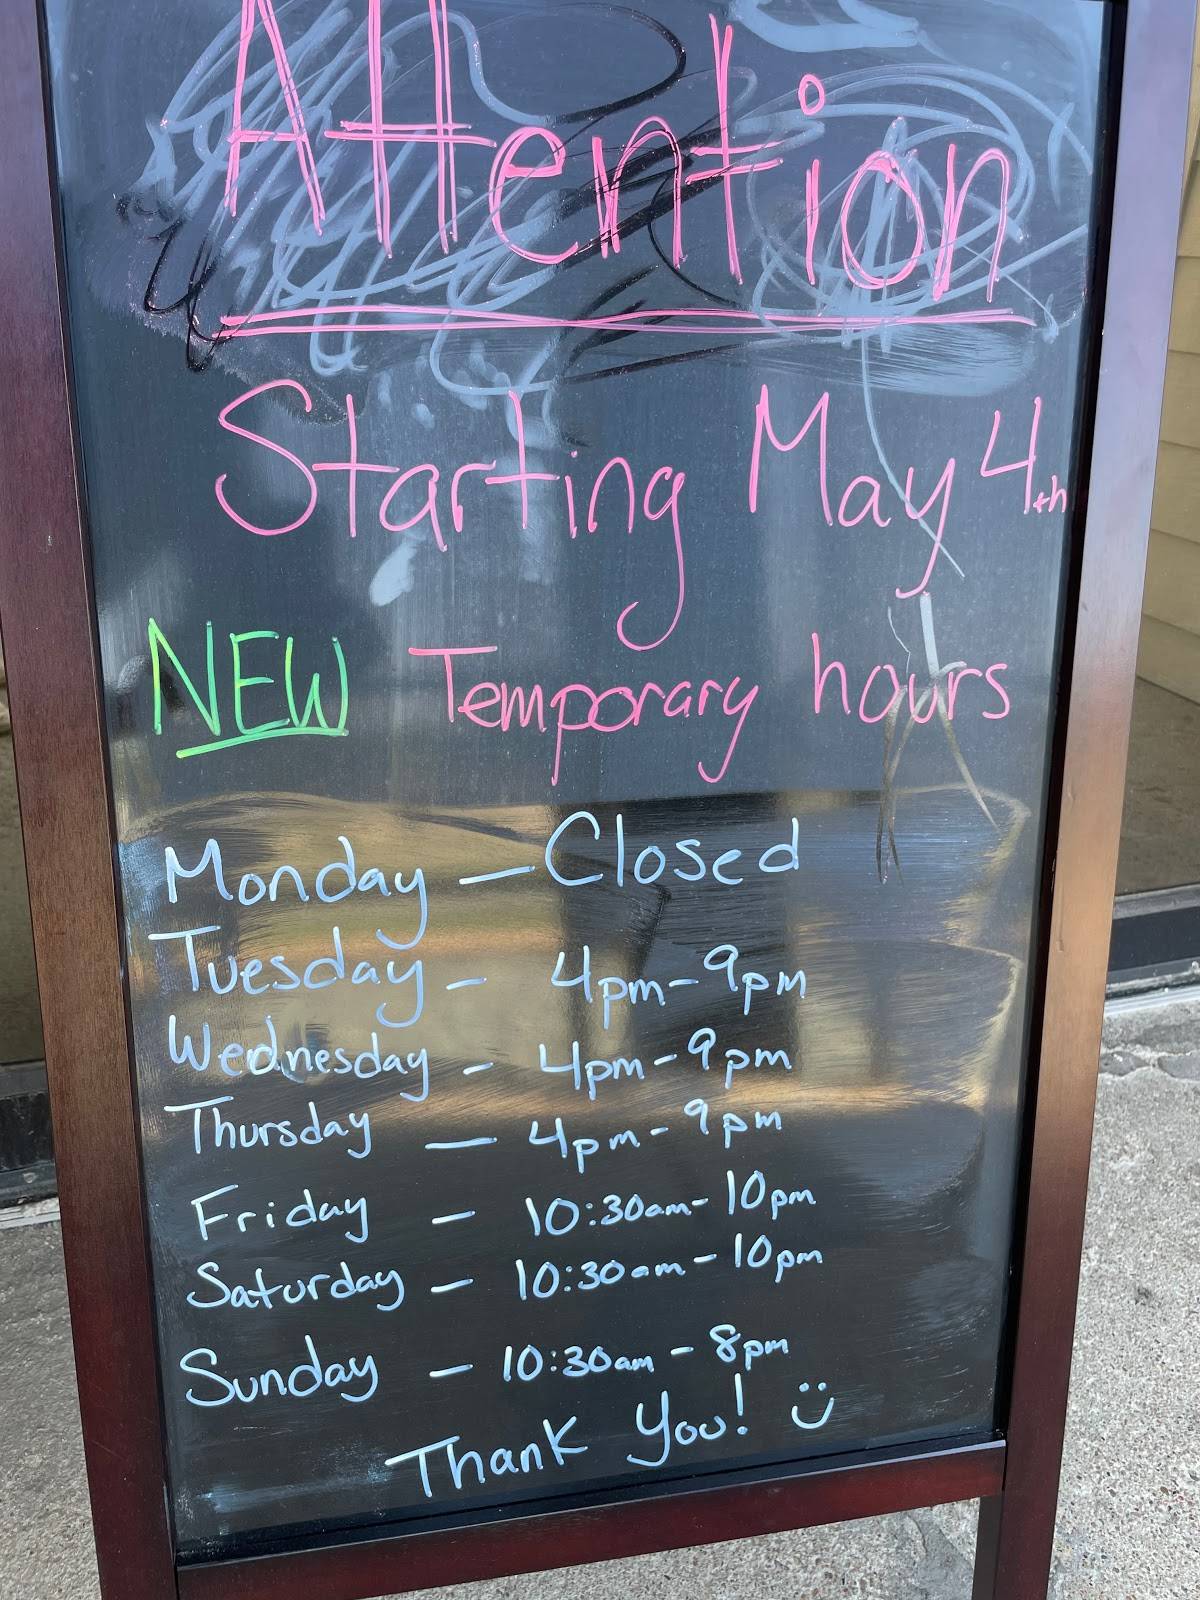 Attention
Starting May 4th
NEW Temporary hours
Monday — Closed
Tuesday - 4pm-9pm
Wednesday - 4pm-9pm
Thursday — 4pm-9pm
Friday - 10:30am-10pm
Saturday - 10:30am-10pm
Sunday - 10:30am-8pm
Thank You! :)